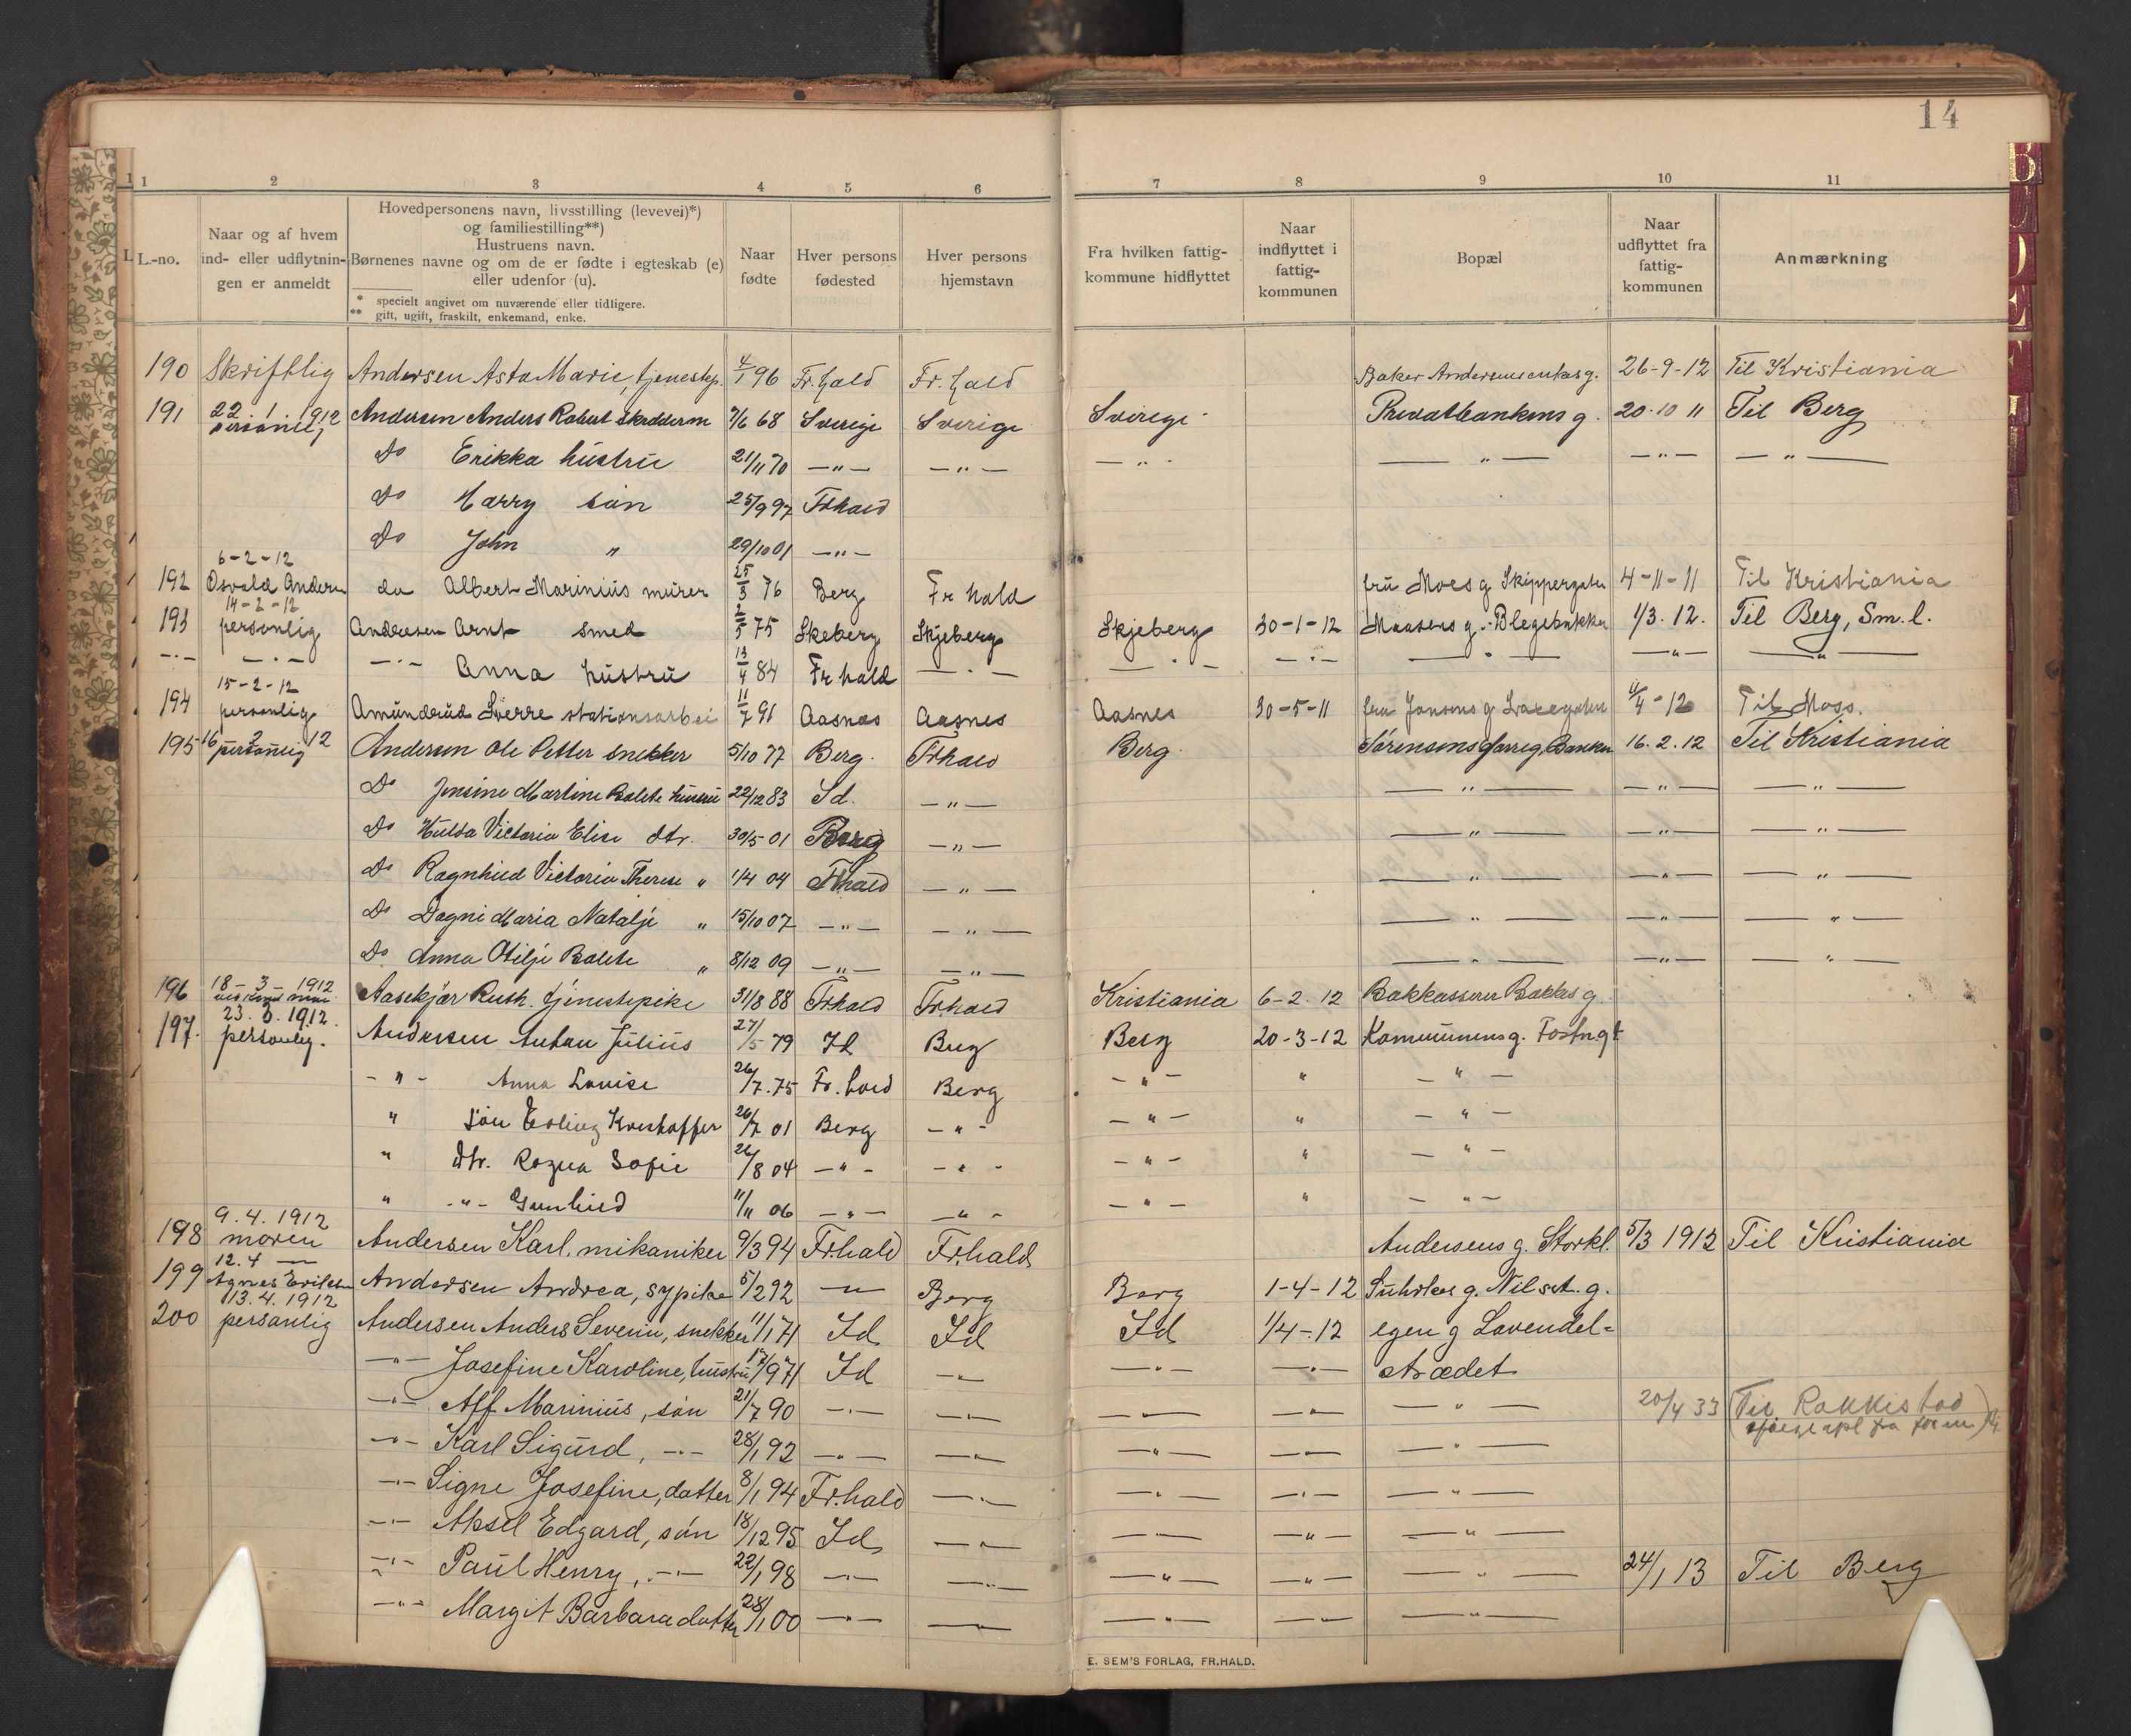 14
1 2 3 4 5 6 7 8 9 10 11
L.-no.
Naar og af hvem ind- eller udflytningen er anmeldt
Hovedpersonens navn, livsstilling (levevei)*)
og familiestilling**)
Hustruens navn.
Børnenes navne og om de er fødte i egteskab (e)
eller udenfor (u).
* specielt angivet om nuværende eller tidligere.
** gift, ugift, fraskilt, enkemand, enke.
Naar fødte
Hver persons fødested
Hver persons hjemstavn
Fra hvilken fattigkommune hidflyttet
Naar indflyttet i fattigkommunen
Bopæl
Naar udflyttet fra fattigkommunen
Anmærkning
190 Skriftlig Andersen Asta Marie, tjenestep. 4/1 96 Fr.hald Fr.hald Baker Andersens enkes g. 26-9-12 Til Kristiania
191 22.1.1912 personlig Andersen Anders Robert skredderm 7/6 68 Sverige Sverige Sverige Privatbankens g. 20.10 11 Til Berg
Do Erikka hustru 21/11 70 —"— —"— —"— —"— —"— —"—
Do Harry søn 25/9 97 Frhald
Do John " 29/10 01 —"—
6-2-12
192 Osvald Andersn do Albert Marinius murer 25/3 76 Berg Fr hald fru Moes g Skippergaten 4-11-11 Til Kristiania
14-2-12
193 personlig Andresen Arnt smed 2/5 75 Skeberg Skjeberg Skjeberg 30-1-12 Maasens g. Blegebakken 1/3. 12. Til Berg, Sm.l.
—"— —"— —"— Anna hustru 13/4 84 Fr hald —"— —"— —"— —"— —"— —"—
15-2-12
194 personlig Amundrud Sverre stationsarbei 11/7 91 Aasnes Aasnes Aasnes 30-5-11 fru Jansens g 4/4-12 Til Moss.
195 16 2 12 personlig Andersen Ole Petter snekker 5/10 77 Berg. Frhald Berg. Sørensens g 16.2.12 Til Kristiania
Do Jensine Martine Bolete hustru 22/12 83 Id. —"— —"— —"— —"—
Do Hulda Victoria Elise dtr. 30/5 01 Berg —"— —"— —"— —"—
Do Ragnhild Victoria Therese " 1/4 04 Frhald —"— —"— —"— —"—
Do Dagni Maria Natalje " 15/10 07 —"— —"— —"— —"— —"—
Do Anna Otilje Bolete " 8/12 09 —"— —"— —"— —"— —"—
196 18-3-1912 Aasekjær Ruth. tjenestepike 31/8 88 Frhald Frhald Kristiania 6-2.12 Bakkasserer Bakkes g.
23.3.1912.
197. personlig. Andersen Anton Julius 27/5 79 Id Berg Berg 20-3-12 Kommunens g. Fostngt
-"- Anna Lovise 26/7.75 Fr.hald Berg -"- " -"-
" søn Erling Kristoffer 26/7 01 Berg -"- -"- " -"-
" dtr. Ragna Sofie 26/8 04 -"- -"- -"- " -"-
" -"- Gunhild 11/11 06 -"- -"- -"- " -"-
9.4.1912
198 moren Andersen Karl, mikaniker 9/3 94 Fr.hald Fr.hald Andersens g. Storkl. 5/3 1912 Til Kristiania
12.4 —
199 Agnes Eriksen Andersen Andrea, sypike 5/2 92 —"— Berg Berg 1-4-12 Suhrkes g. Nilset. g.
13.4.1912
200 personlig Andersen Anders Severin, snekker 11/1 71 Id Id Id 1/4-12 egen g Lavendel=
—"— Josefine Karoline, hustru 17/9 71 Id —"— —"— —"— strædet
—"— Alf Marinius, søn 21/7 90 —"— —"— —"— —"— —"— 20/4 33 (Til Rakkestad
—"— Karl Sigurd, —"— 28/1 92 —"— —"— —"— —"— —"—
—"— Signe Josefine, datter 8/1 94 Fr.hald —"— —"— —"— —"—
—"— Aksel Edgard, søn 18/12 95 Id —"— —"— —"— —"—
—"— Paul Henry, —"— 22/1 98 —"— —"— —"— —"— —"— 24/1 13 Til Berg
—"— Margit Barbara datter 28/1 00 —"— —"— —"— —"— —"—
E. SEM'S FORLAG, FR.HALD.